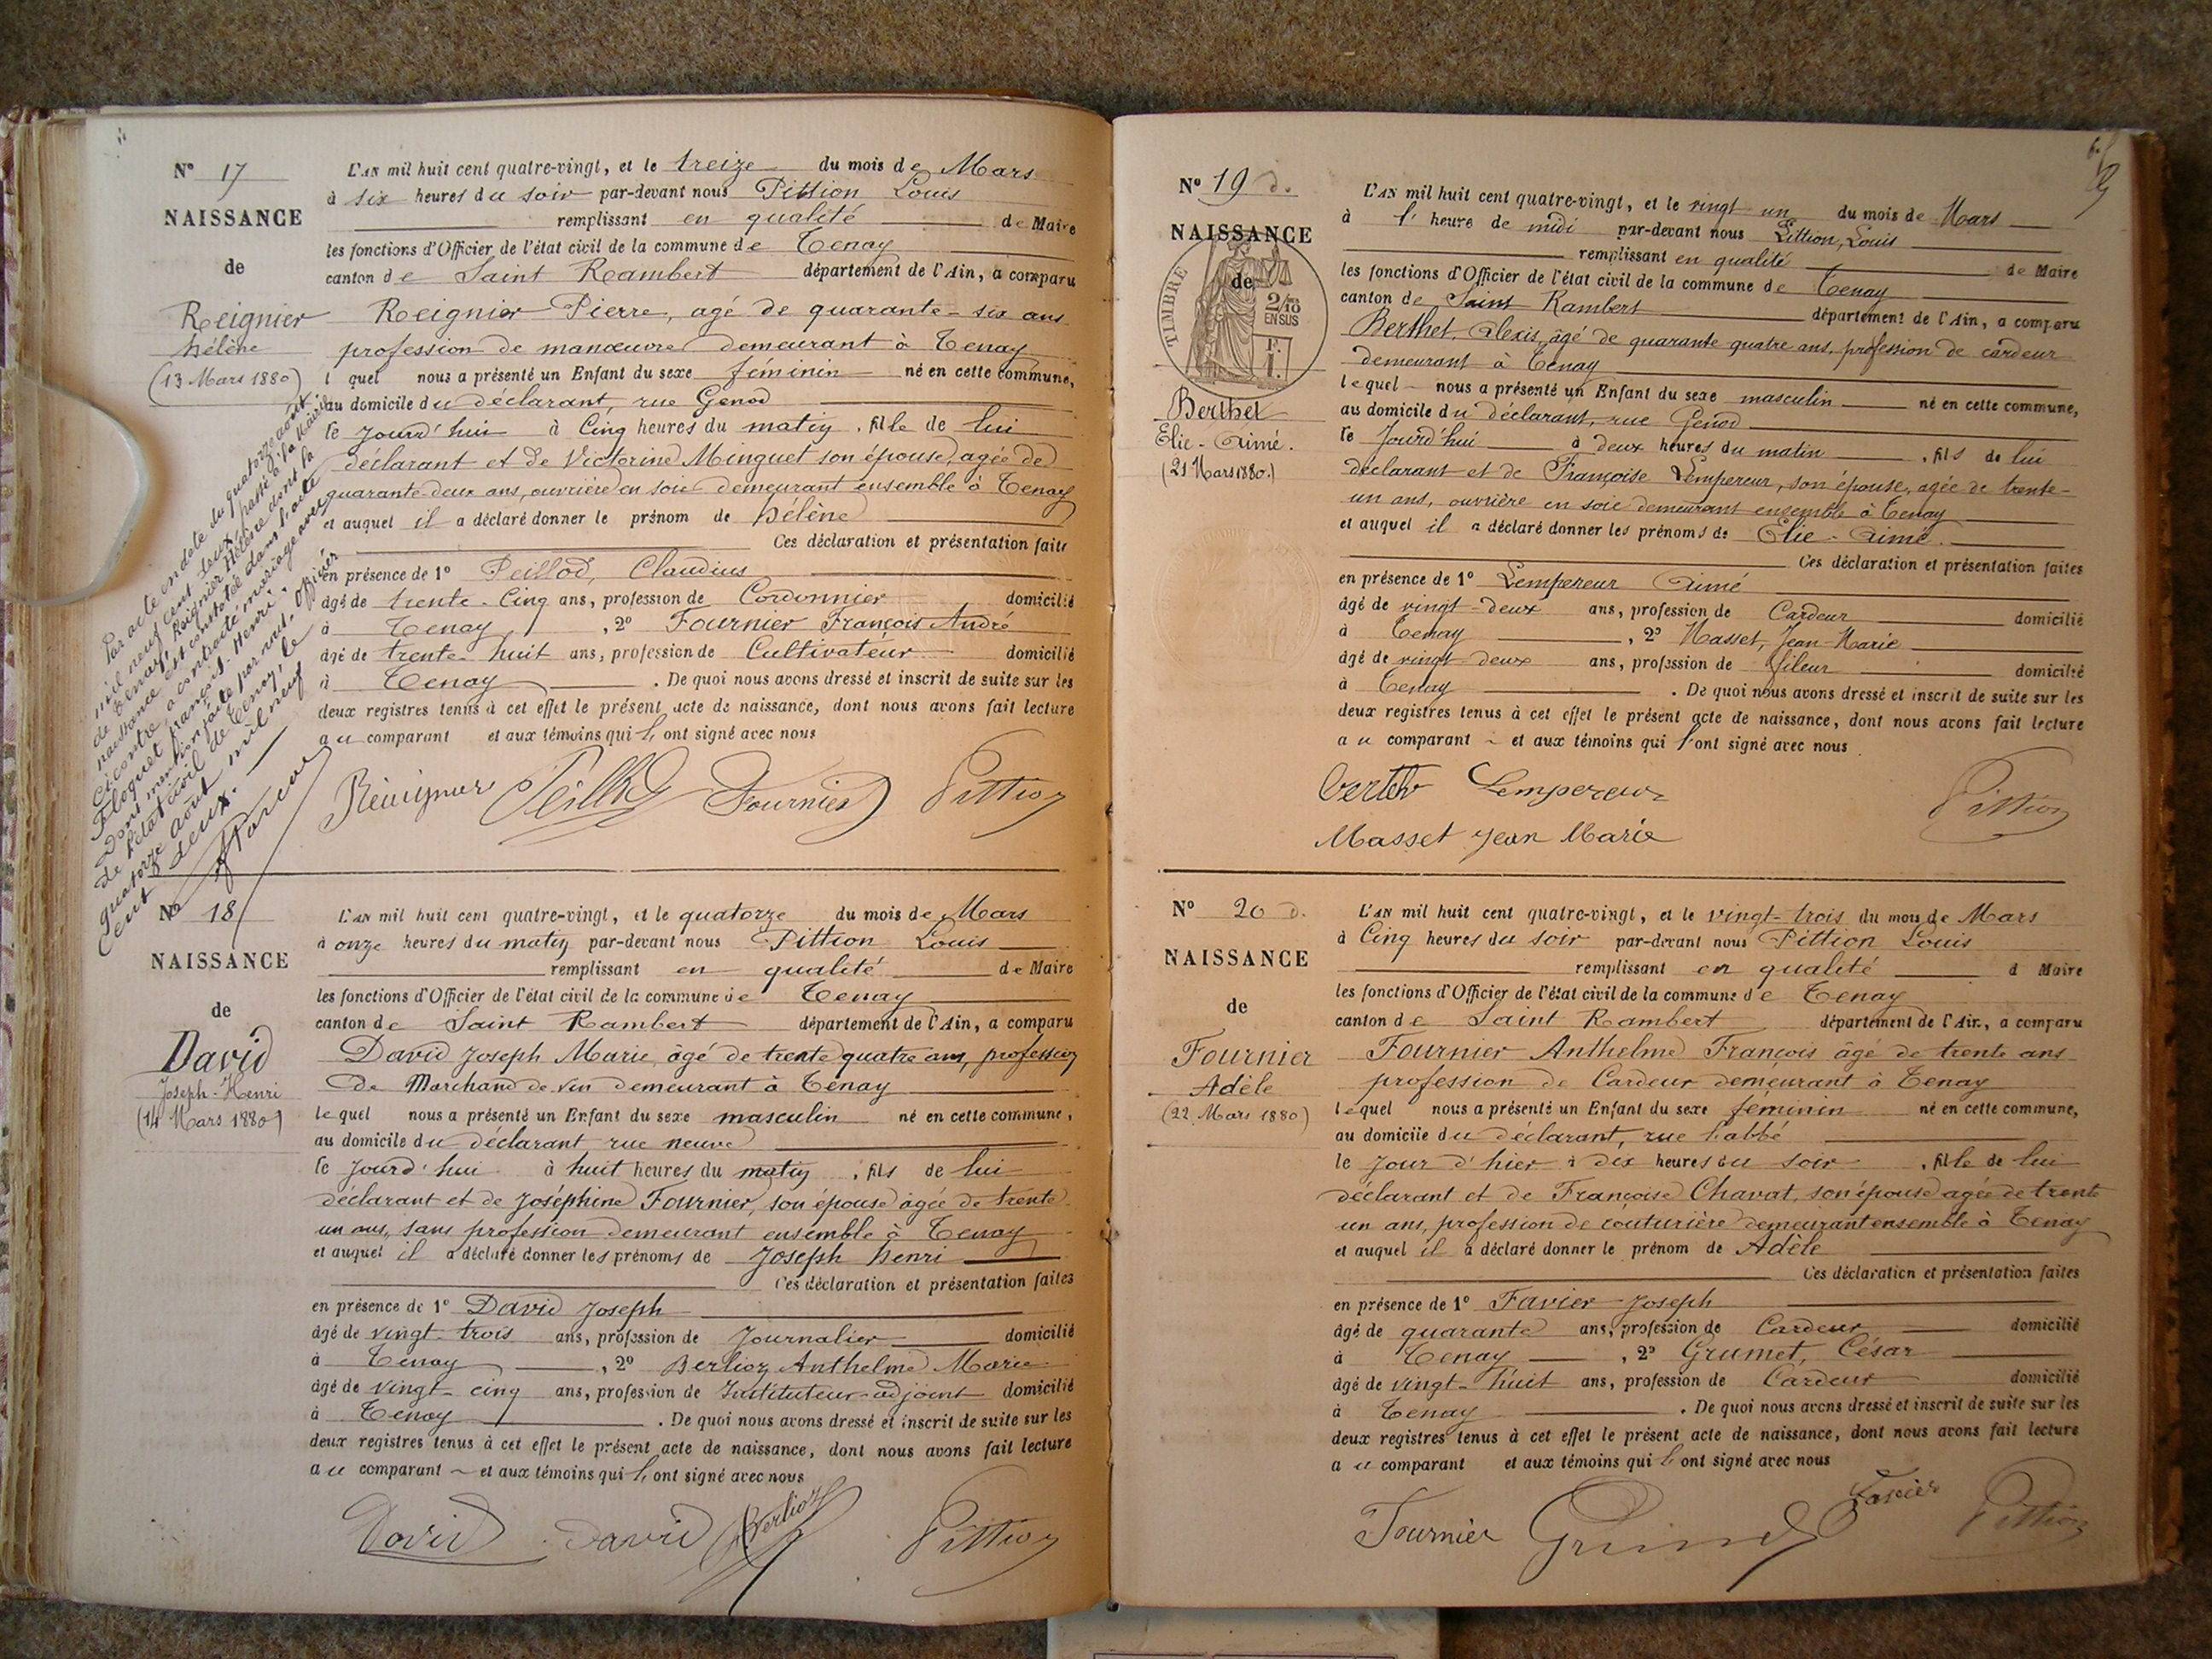 N° 17
NAISSANCE
de
Reignier
Hélène
(13 Mars 1880)
Par acte en date du quatorze août
mil neuf cent deux, passé à la Mairie
de Tenay, Reignier Hélène dont la
naissance est constatée dans l'acte
ci contre, a contracté mariage avec
Floquet François-Henri.
Dont mention faite par nous, officier
de l'état civil de Tenay, le
quatorze août mil neuf
cent deux.
L'AN mil huit cent quatre-vingt, et le treize du mois de Mars
à six heures du soir par-devant nous Pittion Louis
remplissant en qualité de Maire
les fonctions d'Officier de l'état civil de la commune de Tenay
canton de Saint Rambert département de l'Ain, a comparu
Reignier Pierre, agé de quarante-six ans
profession de manœuvre demeurant à Tenay
lequel nous a présenté un Enfant du sexe féminin né en cette commune,
au domicile du déclarant, rue Genod
le jourd'hui à Cinq heures du matin, fille de lui
déclarant et de Victorine Minguet son épouse, agée de
quarante-deux ans, ouvrière en soie demeurant ensemble à Tenay
et auquel il a déclaré donner le prénom de Hélène
Ces déclaration et présentation faite
en présence de 1° Peillod, Claudius
âgé de trente-Cinq ans, profession de Cordonnier domicilié
à Tenay, 2° Fournier François André
âgé de trente-huit ans, profession de Cultivateur domicilié
à Tenay. De quoi nous avons dressé et inscrit de suite sur les
deux registres tenus à cet effet le présent acte de naissance, dont nous avons fait lecture
au comparant et aux témoins qui l'ont signé avec nous
Peillod Fournier Pittion
N° 18
NAISSANCE
de
David
Joseph-Henri
(14 Mars 1880)
L'AN mil huit cent quatre-vingt, et le quatorze du mois de Mars
à onze heures du matin par-devant nous Pittion Louis
remplissant en qualité de Maire
les fonctions d'Officier de l'état civil de la commune de Tenay
canton de Saint Rambert département de l'Ain, a comparu
David Joseph Marie, âgé de trente quatre ans, profession
de Marchand de vin demeurant à Tenay
lequel nous a présenté un Enfant du sexe masculin né en cette commune,
au domicile du déclarant rue neuve
le jourd'hui à huit heures du matin, fils de lui
déclarant et de Joséphine Fournier, son épouse agée de trente
un ans, sans profession demeurant ensemble à Tenay
et auquel il a déclaré donner les prénoms de Joseph Henri
Ces déclaration et présentation faites
en présence de 1° David Joseph
âgé de vingt-trois ans, profession de Journalier domicilié
à Tenay, 2° Berlioz Anthelme Marie
âgé de vingt-cinq ans, profession de Instituteur-adjoint domicilié
à Tenay. De quoi nous avons dressé et inscrit de suite sur les
deux registres tenus à cet effet le présent acte de naissance, dont nous avons fait lecture
au comparant et aux témoins qui l'ont signé avec nous
David David Berlioz Pittion
N° 19 d.
NAISSANCE
de
TIMBRE
2/10
EN SUS
F.
1.
Berthet
Elie-Aimé.
(21 Mars 1880.)
L'AN mil huit cent quatre-vingt, et le vingt un du mois de Mars
à l'heure de midi par-devant nous Pittion, Louis
remplissant en qualité de Maire
les fonctions d'Officier de l'état civil de la commune de Tenay
canton de Saint Rambert département de l'Ain, a comparu
Berthet, Alexis, âgé de quarante quatre ans, profession de cardeur
demeurant à Tenay
lequel nous a présenté un Enfant du sexe masculin né en cette commune,
au domicile du déclarant, rue Genod
le Jourd'hui à deux heures du matin, fils de lui
déclarant et de Françoise Lempereur, son épouse, agée de trente-
un ans, ouvrière en soie demeurant ensemble à Tenay
et auquel il a déclaré donner les prénoms de Elie-Aimé.
Ces déclaration et présentation faites
en présence de 1° Lempereur Aimé
âgé de vingt-deux ans, profession de Cardeur domicilié
à Tenay, 2° Masset, Jean-Marie
âgé de vingt-deux ans, profession de fileur domicilié
à Tenay. De quoi nous avons dressé et inscrit de suite sur les
deux registres tenus à cet effet le présent acte de naissance, dont nous avons fait lecture
au comparant et aux témoins qui l'ont signé avec nous
Lempereur Pittion
Masset Jean Marie
N° 20 d.
NAISSANCE
de
Fournier
Adèle
(22 Mars 1880)
L'AN mil huit cent quatre-vingt, et le vingt-trois du mois de Mars
à Cinq heures du soir par-devant nous Pittion Louis
remplissant en qualité d Maire
les fonctions d'Officier de l'état civil de la commune de Tenay
canton de Saint Rambert département de l'Ain, a comparu
Fournier Anthelme François âgé de trente ans
profession de Cardeur demeurant à Tenay
lequel nous a présenté un Enfant du sexe féminin né en cette commune,
au domicile du déclarant, rue l'abbé
le jour d'hier à dix heures du soir, fille de lui
déclarant et de Françoise Chavat, son épouse agée de trente
un ans, profession de couturière demeurant ensemble à Tenay
et auquel il a déclaré donner le prénom de Adèle
Ces déclaration et présentation faites
en présence de 1° Favier Joseph
âgé de quarante ans, profession de Cardeur domicilié
à Tenay, 2° Grumet, César
âgé de vingt-huit ans, profession de Cardeur domicilié
à Tenay. De quoi nous avons dressé et inscrit de suite sur les
deux registres tenus à cet effet le présent acte de naissance, dont nous avons fait lecture
au comparant et aux témoins qui l'ont signé avec nous
Fournier Favier Pittion